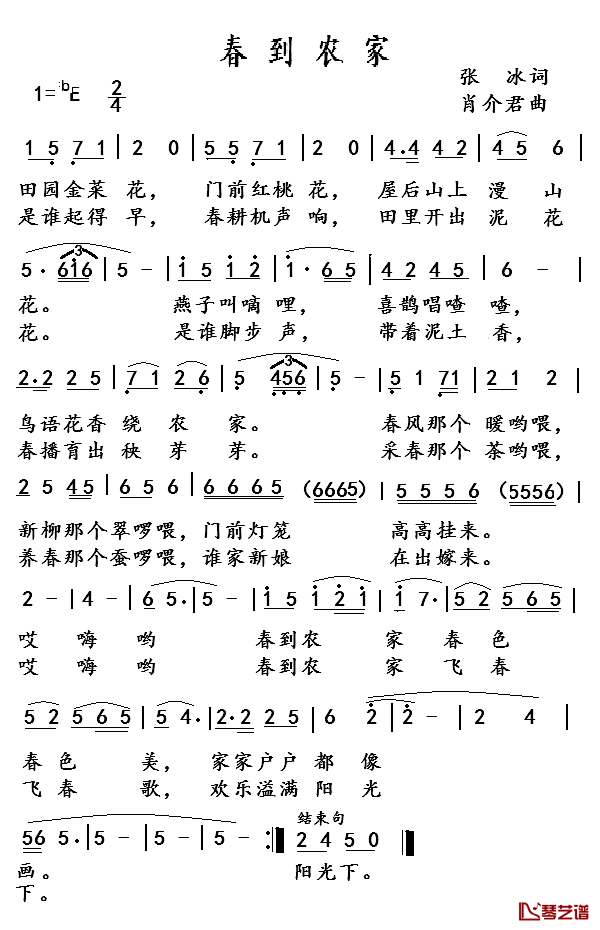 春到农家
张 冰词
1=bE 2/4
肖介君曲
1 5 7 1 | 2 0 | 5 5 7 1 | 2 0 | 4. 4 4 4 | 4 5 6 |
田园金菜 花， 门前红桃 花， 屋后山上 漫 山
是谁起得 早， 春耕机声 响， 田里开出 泥 花
5. 6i6 | 5 - | i 5 i 2 | i. 6 5 | 4 2 4 5 | 5 - |
花。 燕子叫嘀 哩， 喜鹊唱喳 喳，
花。 是谁脚步 声， 带着泥土 香，
2. 2 2 5 | 7 1 2 6 | 5 456 | 5 - | 5 1 71 | 2 1 2 |
鸟语花香 绕 农 家。 春风那个 暖哟喂，
春播育出 秧 芽 芽。 采春那个 茶哟喂，
2 5 45 | 6 5 6 | 6 6 6 5 (6665) | 5 5 5 6 (5556) |
新柳那个翠啰喂，门前灯笼 高高挂来。
养春那个蚕啰喂，谁家新娘 在出嫁来。
2 - | 4 - | 6 5. | 5 - | i 5 i 2 i | i 7. | 5 2 5 6 5 |
哎 嗨 哟 春到农 家 春 色
哎 嗨 哟 春到农 家 飞 春
5 2 5 6 5 | 5 4. | 2. 2 2 5 | 6 2 | 2 - | 2 4 |
春 色 美， 家家户户 都 像
飞 春 歌， 欢乐溢满 阳 光
结束句
56 5. | 5 - | 5 - | 5 - :|| 2 4 5 0 ||
画。 阳光下。
下。
琴艺谱